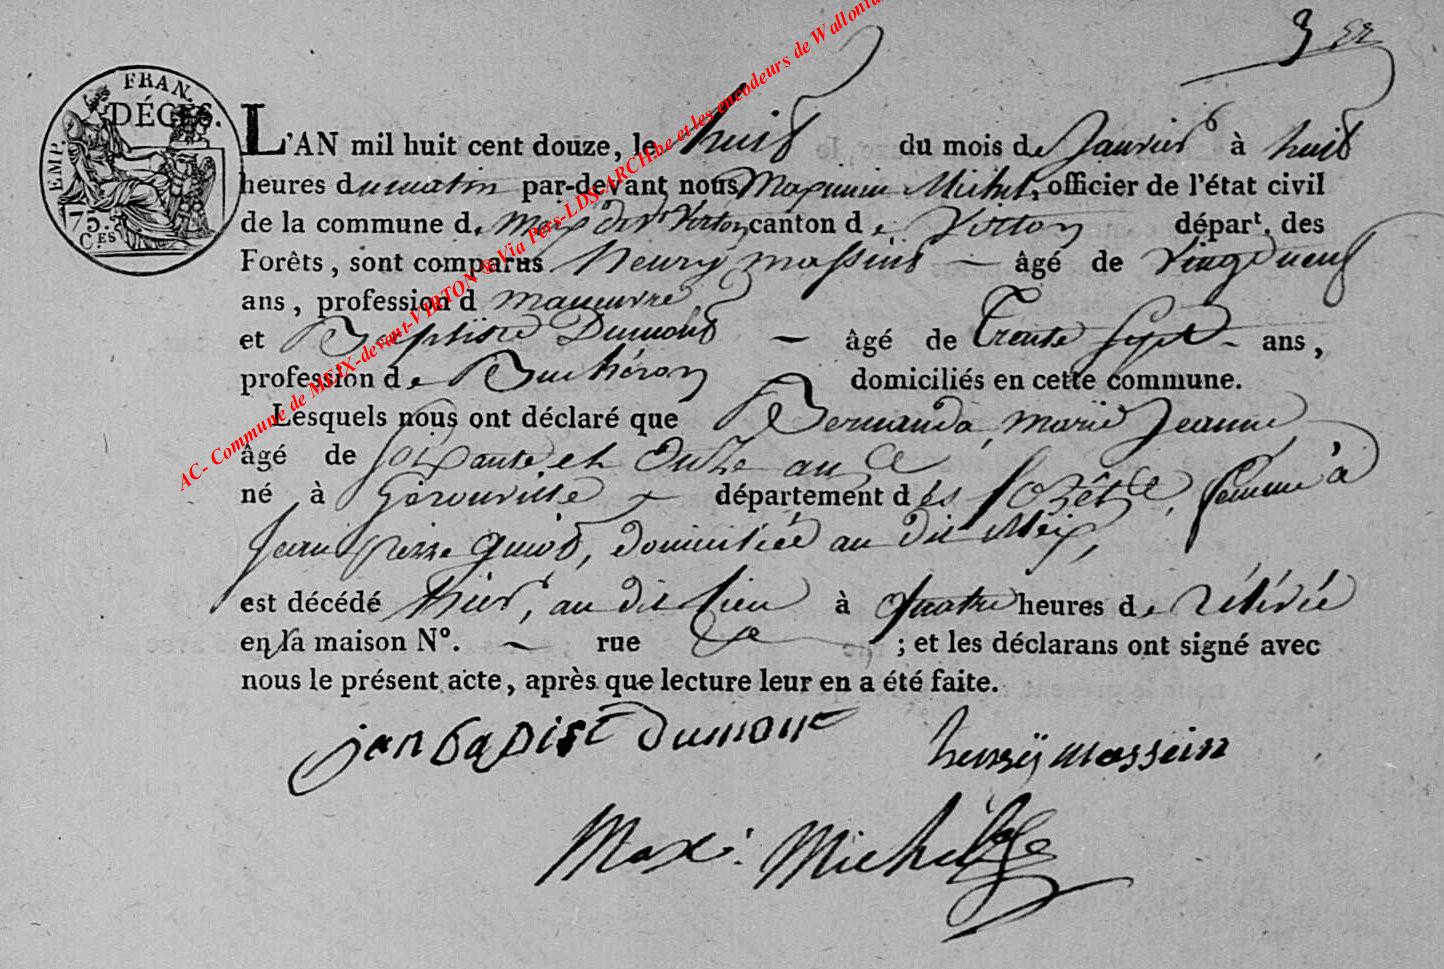 3
EMP. FRAN.
75.
C.ES
DÉCÈS.
L'AN mil huit cent douze, le huit du mois de Janvier à huit
heures du matin par-devant nous Maximin Michel, officier de l'état civil
de la commune de Meix dvt Virton canton de Virton départ. des
Forêts, sont comparus henry massint âgé de vingt neuf
ans, profession d maneuvre
et Baptiste Dumont — âgé de trente sept ans,
profession de Bucheron domiciliés en cette commune.
Lesquels nous ont déclaré que Bernanda, marie Jeanne
âgé de soixante et onze ans
né à Gérouville département des forêts, femme à
Jean pierre guiot, domiciliée au dit Meix,
est décédé hier, au dit lieu à quatre heures de rélévée
en la maison N°. — rue ; et les déclarans ont signé avec
nous le présent acte, après que lecture leur en a été faite.
jan bapist dumont
henrÿ massein
Maxi. Michel
AC- Commune de MEIX-devant-VIRTON Via Pers-LDS-ARCH.be et les encodeurs de Wallonia